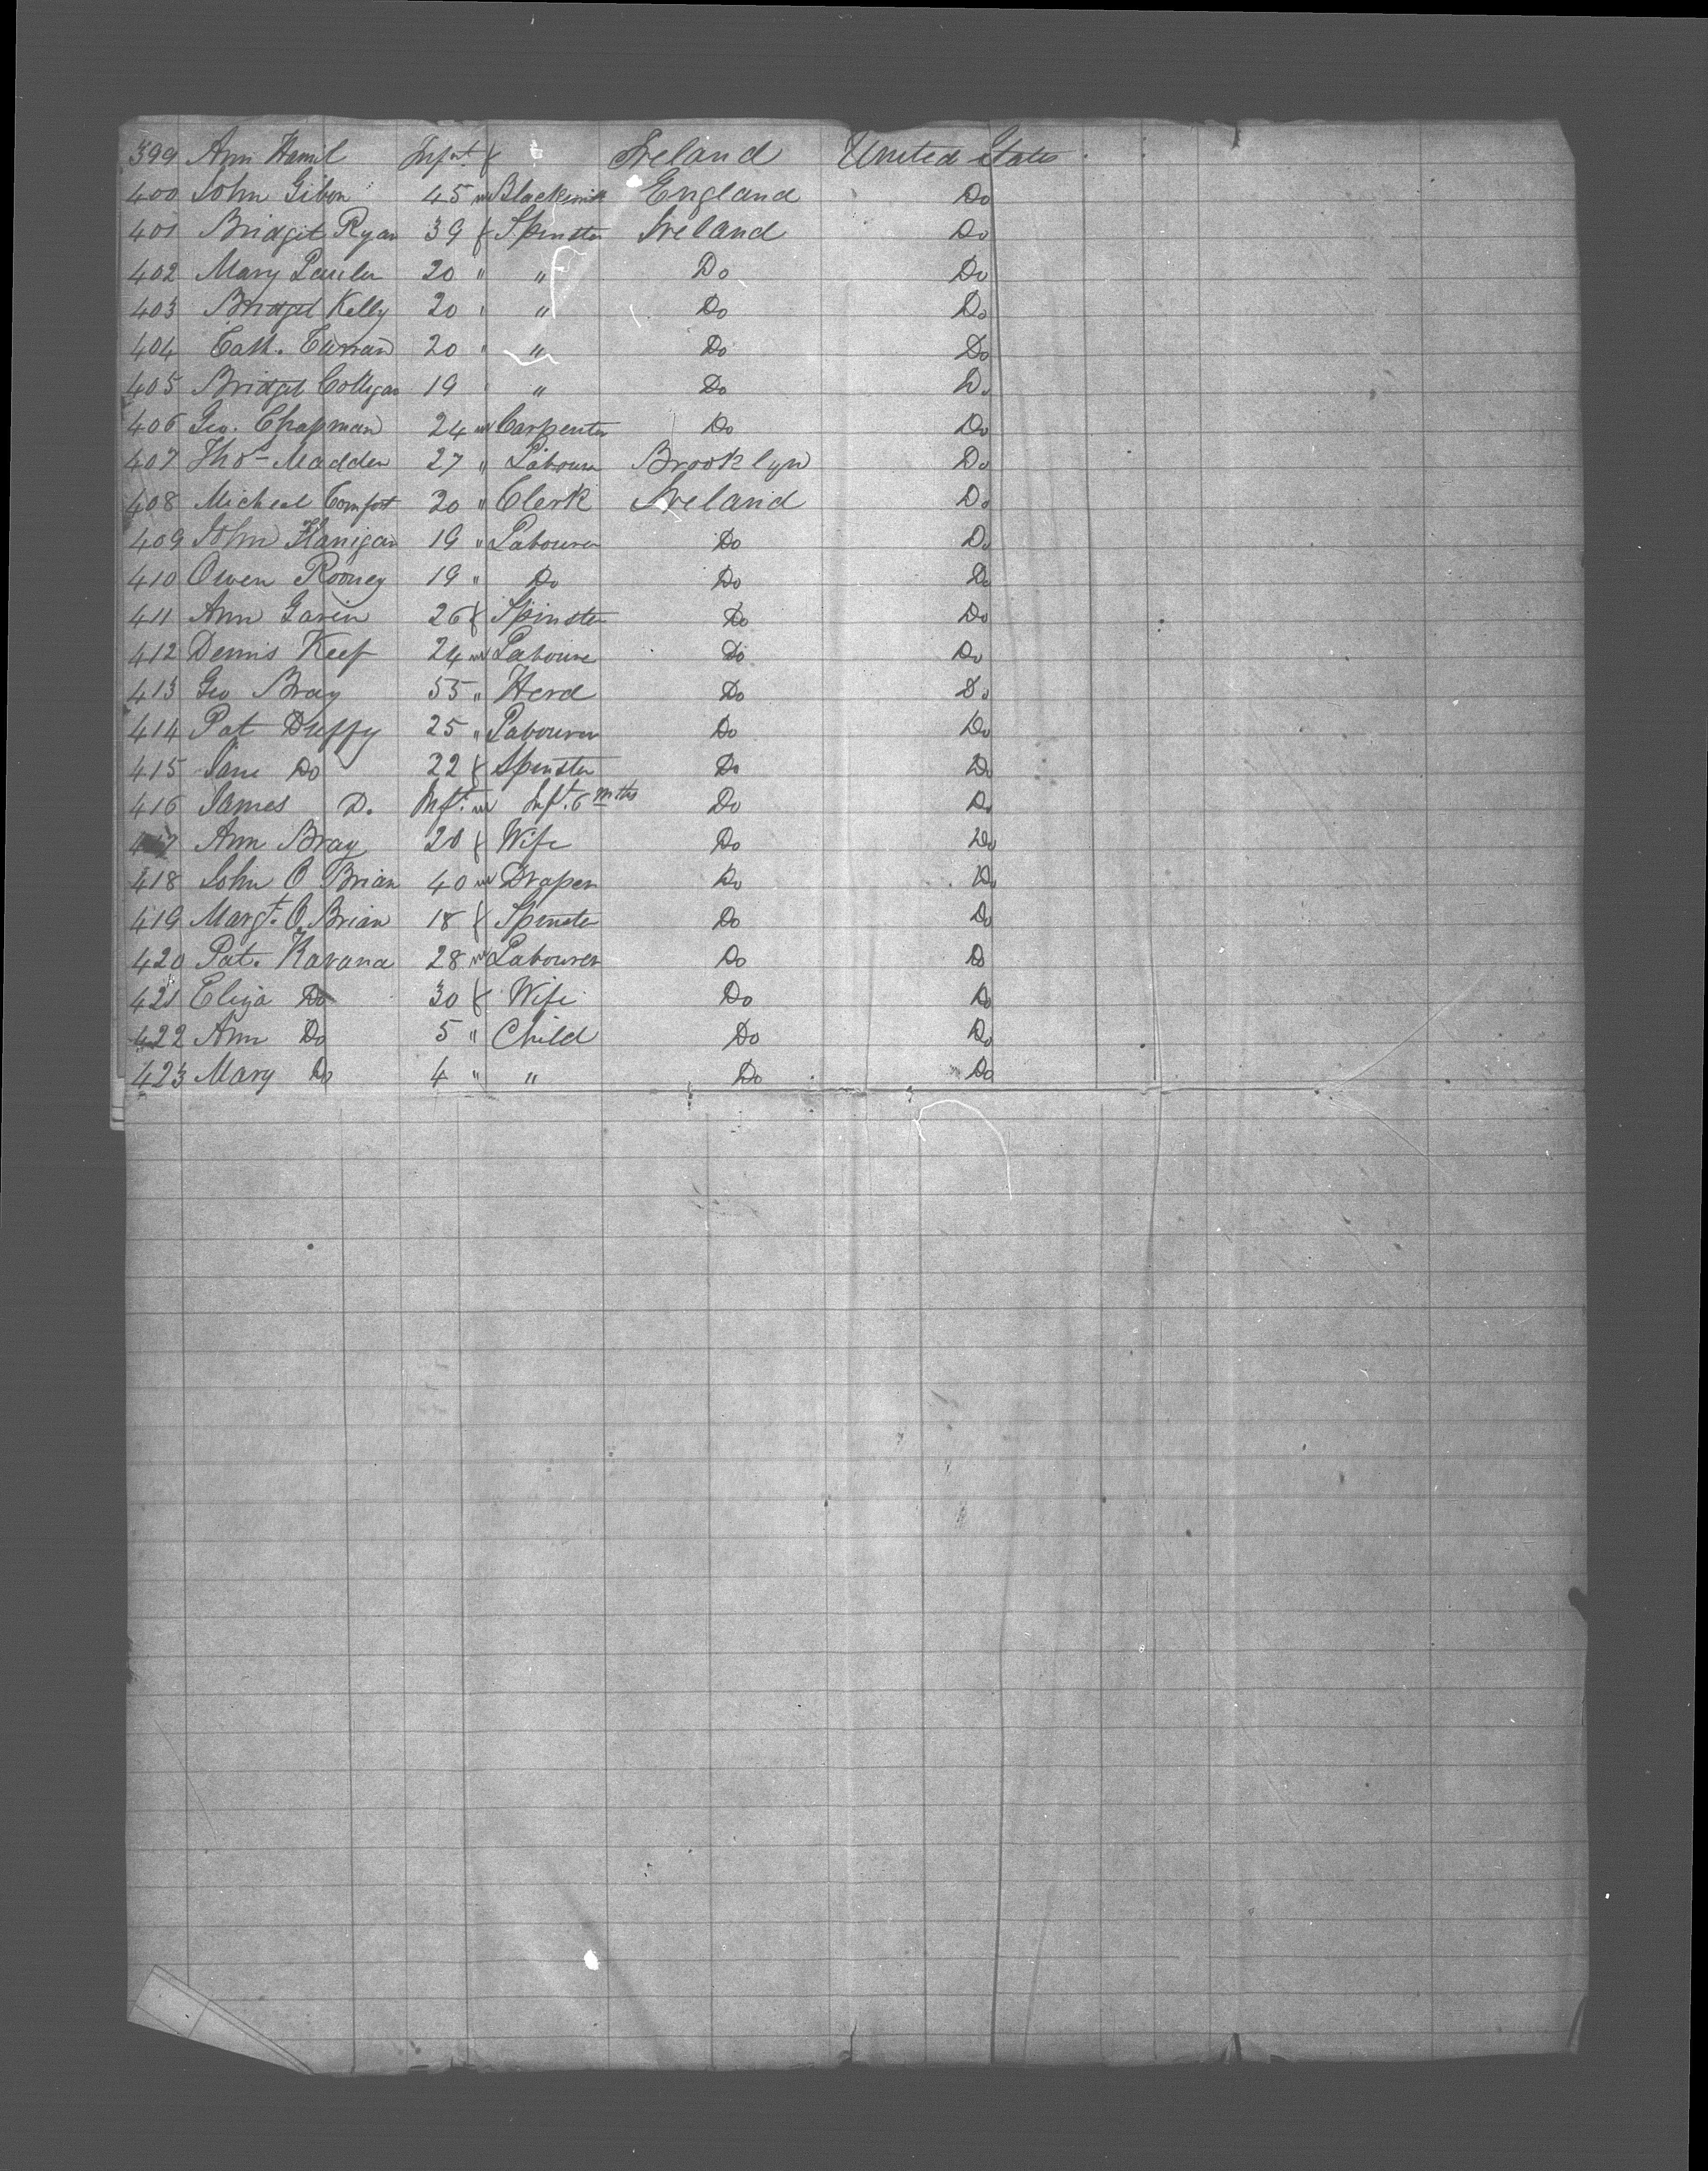 399 Ann Hamil Infnt. f Ireland United States
400 John Gibon 45 m Blacksmith England Do
401 Bridget Ryan 39 f Spinster Ireland Do
402 Mary 20 " " Do Do
403 Bridget Kelly 20 " " Do Do
404 Cath. Curran 20 " " Do Do
405 Bridget Colligan 19 " " Do Do
406 Geo. Chapman 24 m Carpenter Do Do
407 Thos Madden 27 " Labourer Brooklyn Do
408 Micheal Comfort 20 " Clerk Ireland Do
409 John Flanigan 19 " Labourer Do Do
410 Owen Rooney 19 " Do Do Do
411 Ann Gavin 26 f Spinster Do Do
412 Dennis Keef 24 m Laboure Do Do
413 Geo Bray 55 " Herd Do Do
414 Pat Duffy 25 " Labourer Do Do
415 Jane Do 22 f Spinster Do Do
416 James D. Inft. m Inft. 6 mths Do Do
417 Ann Bray 20 f Wife Do Do
418 John O Brian 40 m Draper Do Do
419 Margt. O. Brian 18 f Spinster Do Do
420 Pat. Kavana 28 m Labourer Do Do
421 Eliza Do 30 f Wife Do Do
422 Ann Do 5 " Child Do Do
423 Mary Do 4 " " Do Do